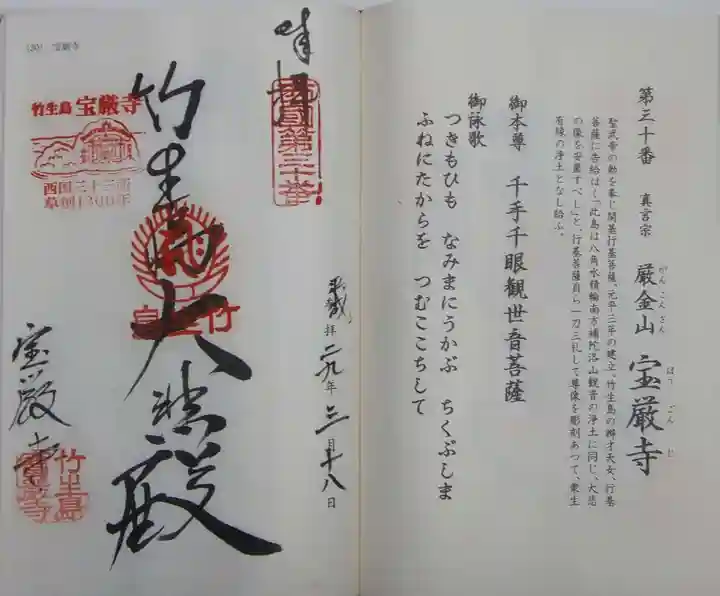 第三十番 真言宗 厳金山 宝厳寺
がんこんざん ほうごんじ
聖武帝の勅を奉じ開基行基菩薩、元平三年の建立、竹生島の辨才天女、行基
菩薩に告給はく「此島は八角水積輪南方補陀洛山観音の浄土に同じ、大悲
の像を安置すべし」と、行基菩薩自ら一刀三礼して尊像を彫刻あつて、衆生
有縁の浄土となし給ふ。
御本尊 千手千眼観世音菩薩
御詠歌
つきもひも なみまにうかぶ ちくぶしま
ふねにたからを つむここちして
(30) 宝厳寺
奉拝
西国第三十番
竹生島 宝厳寺
西国三十三所
草創1300年
竹生島
大悲殿
平成
拝
二九年三月十八日
宝厳寺
竹生島
宝厳寺